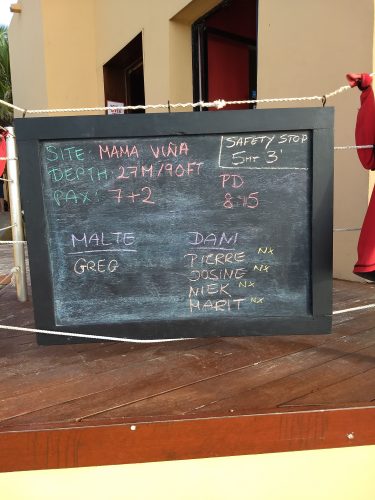 SITE: MAMA VIÑA
DEPTH: 27M/90FT
PAX: 7+2
SAFETY STOP
5MT 3'
PD
8:15
MALTE
GREG
DANI
PIERRE NX
JOSINE NX
NIEK NX
MARIT NX